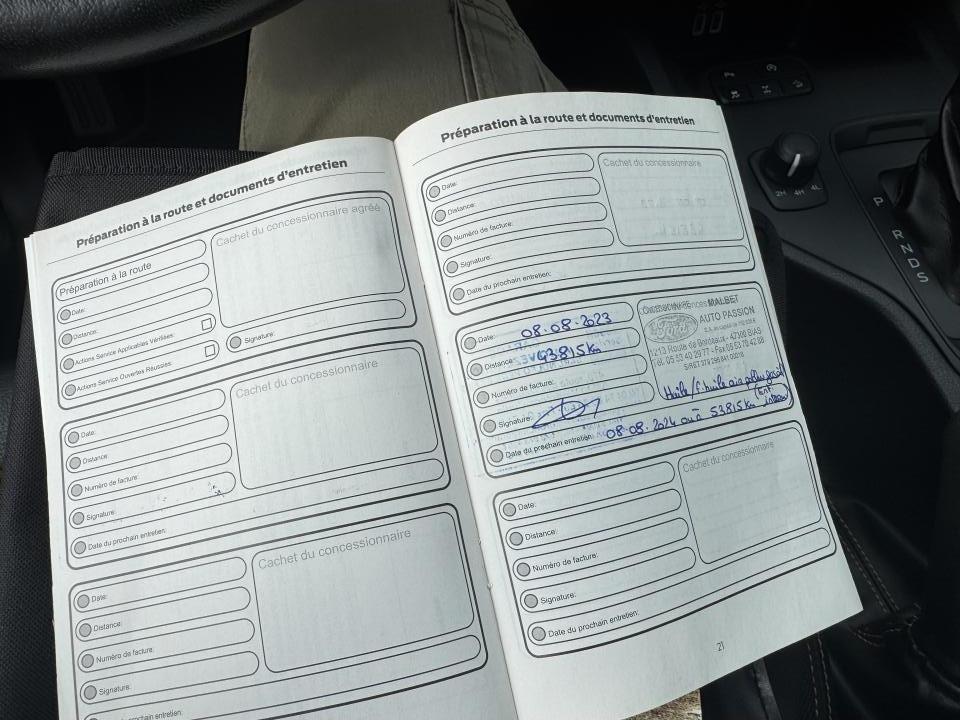 Préparation à la route et documents d'entretien
Préparation à la route
Cachet du concessionnaire agréé
Date:
Distance:
Actions Service Applicables Vérifiées:
Actions Service Ouvertes Réussies:
Signature:
Cachet du concessionnaire
Date:
Distance:
Numéro de facture:
Signature:
Date du prochain entretien:
Cachet du concessionnaire
Date:
Distance:
Numéro de facture:
Signature:
Date du prochain entretien:
Préparation à la route et documents d'entretien
Cachet du concessionnaire
Date:
Distance:
Numéro de facture:
Signature:
Date du prochain entretien:
MALBET
AUTO PASSION
1213 Route de Bordeaux - 47300 BIAS
Tel. 05 53 40 29 77 - Fax 05 53 70 42 88
Date: 08.08.2023
Distance: 43815 km
Numéro de facture:
Signature:
Huile / f. huile
Date du prochain entretien: 08.08.2024 ou à 53815 km
Cachet du concessionnaire
Date:
Distance:
Numéro de facture:
Signature:
Date du prochain entretien:
21
2H 4H 4L
P
R
N
D
S